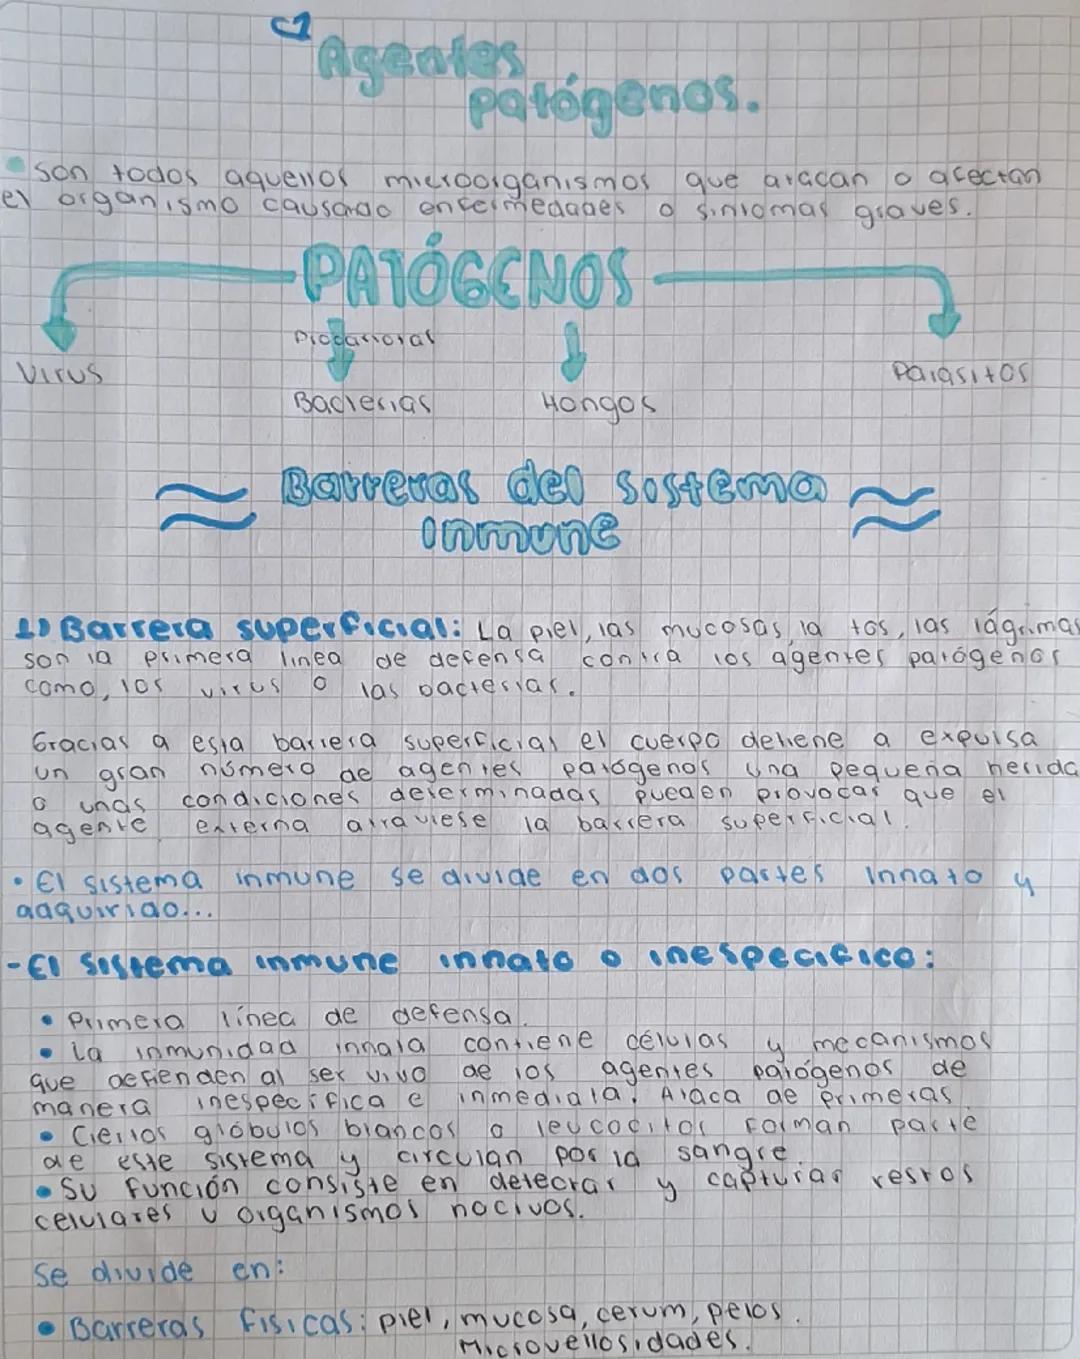 Agentes
patógenos.
• son todos aquellos microorganismos que atacan o afectan
el organismo causando enfermedades o síntomas graves.
PATÓGENOS
Virus
Bacterias
Hongos
Parásitos
Barreras del sistema
inmune
1) Barrera superficial: La piel, las mucosas, la tos, las lágrimas
son la primera linea de defensa contra los agentes patógenos
como, los virus o las bacterias.
Gracias a esta barrera superficial el cuerpo detiene a expulsa
un gran número de agentes patógenos una pequeña herida
o unas condiciones determinadas pueden provocar que el
agente externa atraviese la barrera superficial.
• El sistema inmune se divide en dos partes Innato y
adquirido...
-El sistema inmune innato o inespecifico:
• Primera línea de defensa.
• La inmunidad innata contiene células y mecanismos
que defienden al ser vivo de los agentes patógenos de
manera inespecífica e inmediata. Ataca de primeras.
• Ciertos glóbulos blancos o leucocitos forman parte
de este sistema y circulan por la sangre.
• Su función consiste en detectar y capturar restos
celulares u organismos nocivos.
Se divide en:
• Barreras fisicas: piel, mucosa, cerum, pelos.
Microvellosidades.